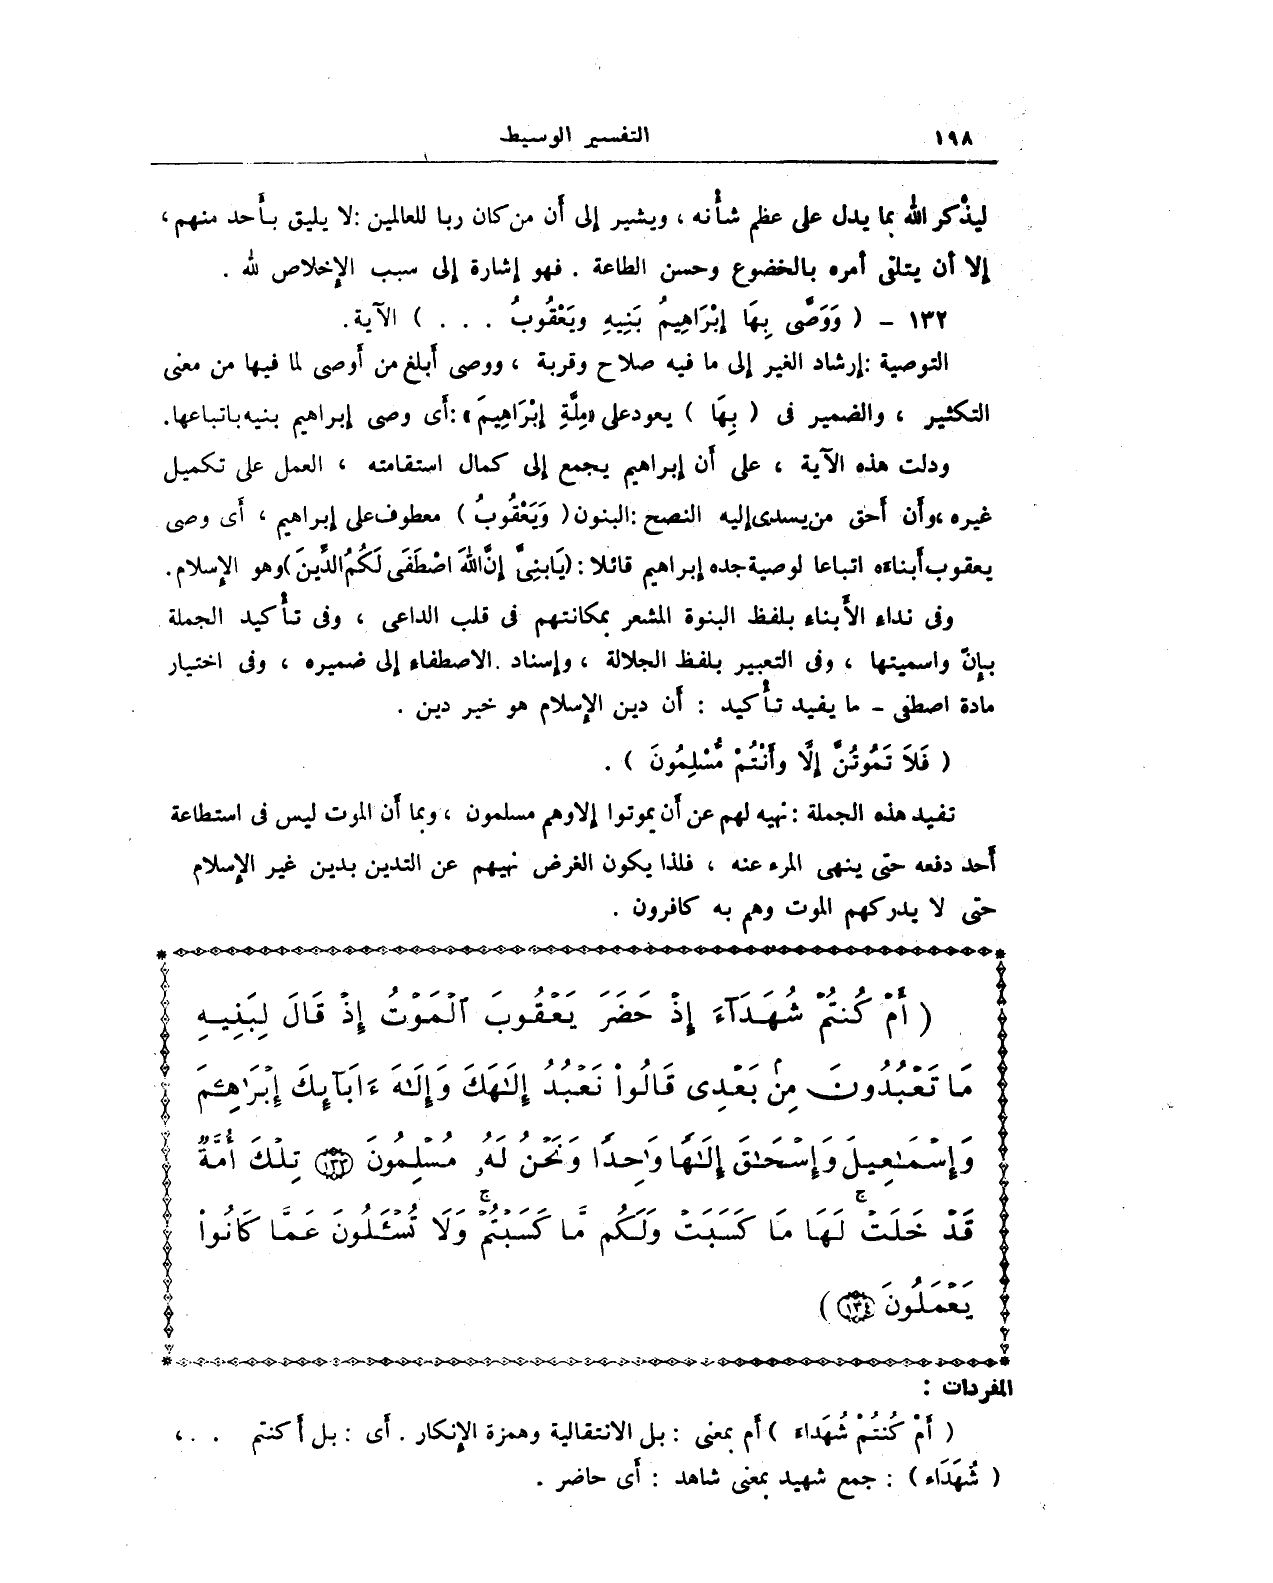 ١٩٨
التفسير الوسيط
ليذكر الله بما يدل على عظم شأنه ، ويشير إلى أن من كان ربا للعالمين : لا يليق بأحد منهم ،
إلا أن يتلقى أمره بالخضوع وحسن الطاعة . فهو إشارة إلى سبب الإخلاص لله .
١٣٢ – ( وَوَصَّى بِهَا إِبْرَاهِيمُ بَنِيهِ ويَعْقُوبُ . . . ) الآية .
التوصية : إرشاد الغير إلى ما فيه صلاح وقربة ، ووصى أبلغ من أوصى لما فيها من معنى
التكثير ، والضمير فى ( بِهَا ) يعود على «مِلَّةِ إِبْرَاهِيمَ» : أى وصى إبراهيم بنيه باتباعها .
ودلت هذه الآية ، على أن إبراهيم يجمع إلى كمال استقامته ، العمل على تكميل
غيره ، وأن أحق من يسدى إليه النصح : البنون ( وَيَعْقُوبُ ) معطوف على إبراهيم ، أى وصى
يعقوب أبناءه اتباعا لوصية جده إبراهيم قائلا : ( يَابَنِىَّ إِنَّ اللهَ اصْطَفَى لَكُمُ الدِّينَ ) وهو الإسلام .
وفى نداء الأبناء بلفظ البنوة المشعر بمكانتهم فى قلب الداعى ، وفى تأكيد الجملة
بإنّ واسميتها ، وفى التعبير بلفظ الجلالة ، وإسناد الاصطفاء إلى ضميره ، وفى اختيار
مادة اصطفى – ما يفيد تأكيد : أن دين الإسلام هو خير دين .
( فَلاَ تَمُوتُنَّ إِلَّا وأَنْتُمْ مُّسْلِمُونَ ) .
تفيد هذه الجملة : نهيه لهم عن أن يموتوا إلا وهم مسلمون ، وبما أن الموت ليس فى استطاعة
أحد دفعه حتى ينهى المرء عنه ، فلذا يكون الغرض نهيهم عن التدين بدين غير الإسلام
حتى لا يدركهم الموت وهم به كافرون .
( أَمْ كُنتُمْ شُهَدَآءَ إِذْ حَضَرَ يَعْقُوبَ ٱلْمَوْتُ إِذْ قَالَ لِبَنِيهِ
مَا تَعْبُدُونَ مِنۢ بَعْدِى قَالُوا۟ نَعْبُدُ إِلَٰهَكَ وَإِلَٰهَ ءَابَآئِكَ إِبْرَٰهِـۧمَ
وَإِسْمَٰعِيلَ وَإِسْحَٰقَ إِلَٰهًا وَٰحِدًا وَنَحْنُ لَهُۥ مُسْلِمُونَ ١٣٣ تِلْكَ أُمَّةٌ
قَدْ خَلَتْ ۖ لَهَا مَا كَسَبَتْ وَلَكُم مَّا كَسَبْتُمْ ۖ وَلَا تُسْـَٔلُونَ عَمَّا كَانُوا۟
يَعْمَلُونَ ١٣٤ )
المفردات :
( أَمْ كُنْتُمْ شُهَداءَ ) أم بمعنى : بل الانتقالية وهمزة الإنكار . أى : بل أكنتم . . ،
( شُهَدَاءَ ) : جمع شهيد بمعنى شاهد : أى حاضر .